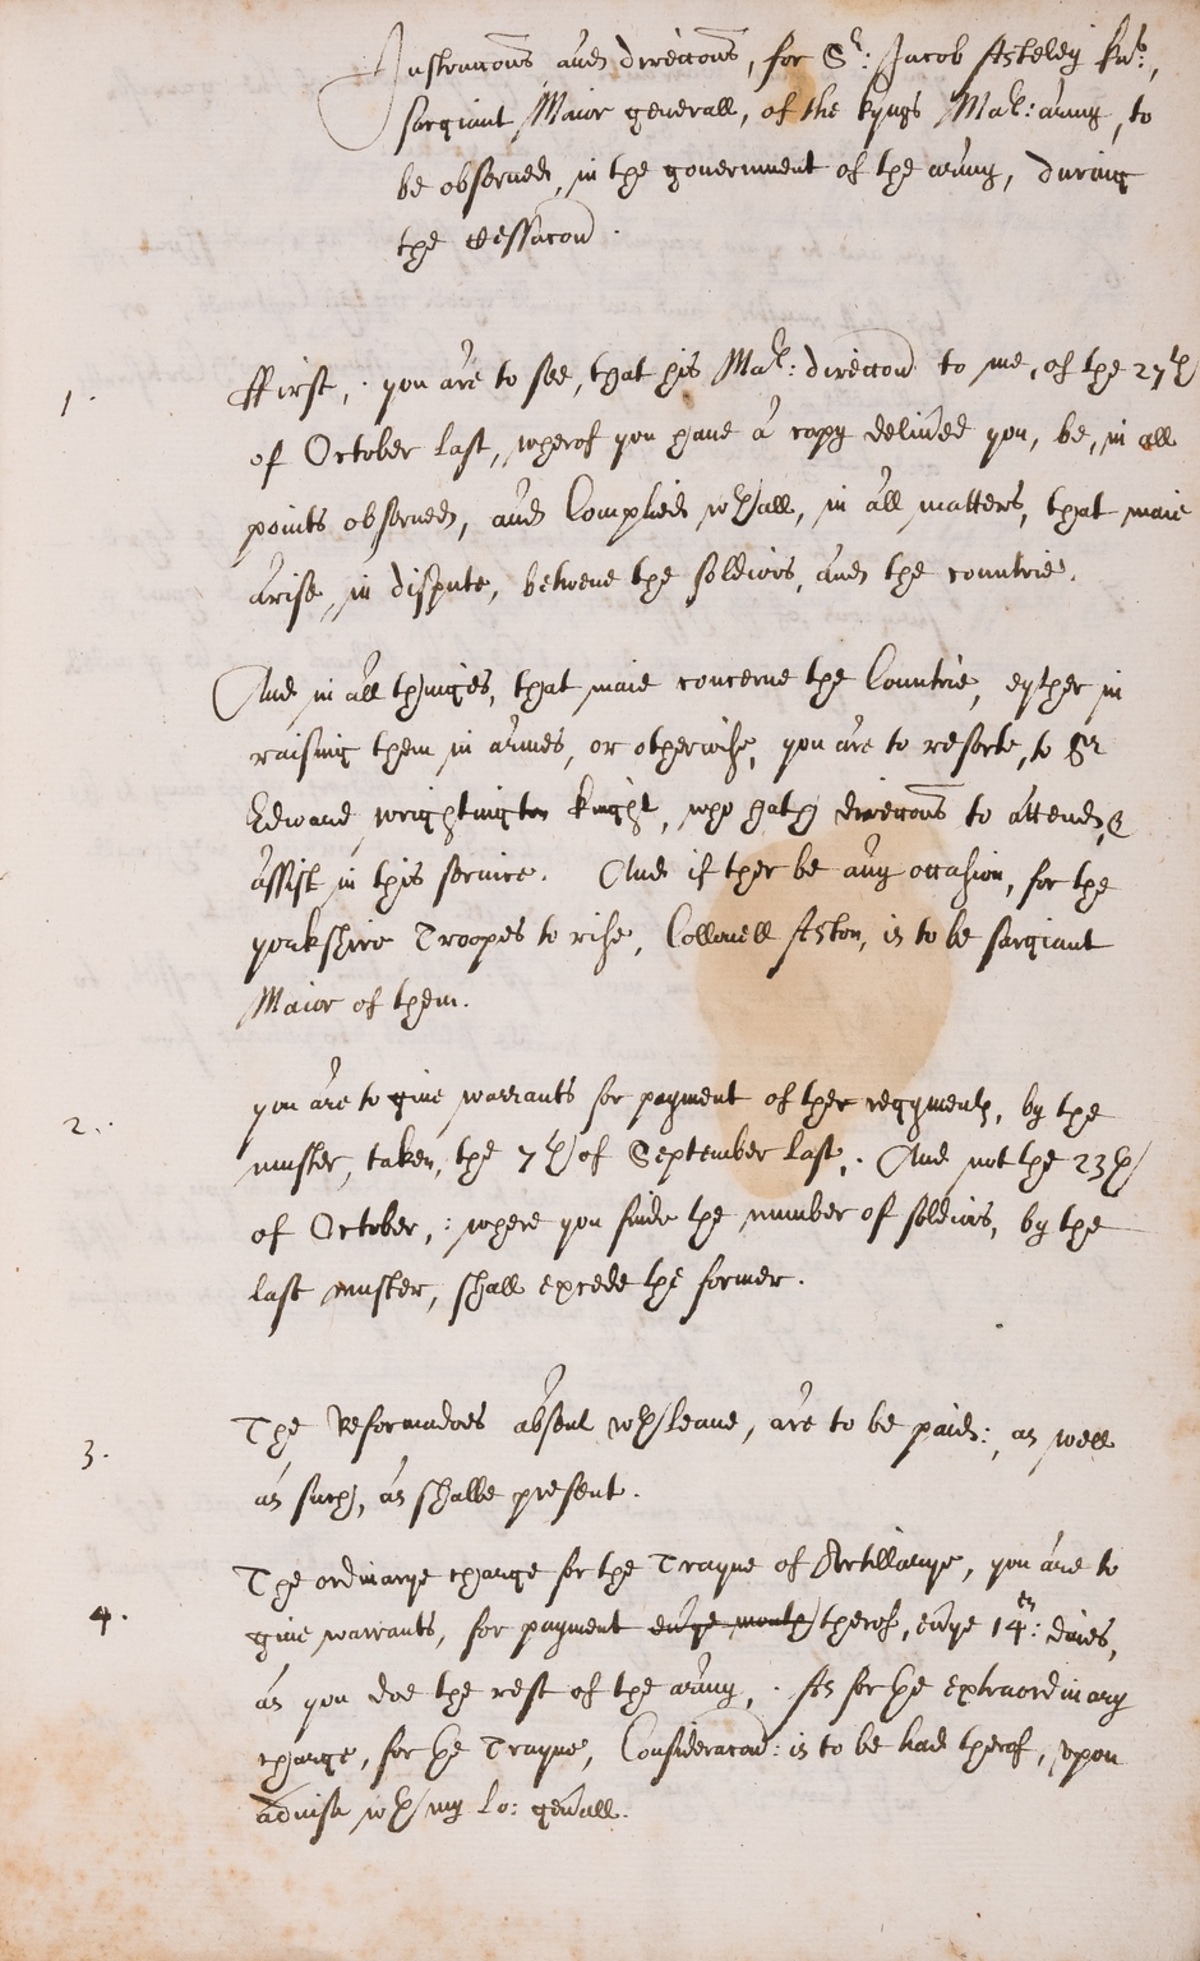 Instruccons and direccons, for Sr: Jacob Asteley knt:,
sargiant Maior generall, of the kyngs Matꝭ: army, to
be obserued, in the gouernment of the army, during
the Cessacon.
1. ffirst,. you are to see, that his Matꝭ: direccon to me, of the 27th
of October last, wherof you haue a copy deliũed you, be, in all
points obserued, and Complied wth/all, in all matters, that maie
arise, in dispute, betwene the soldiors, and the countrie.
And in all thinges, that maie concerne the Countrie, eyther in
raising them in armes, or otherwise, you are to resorte, to Sr
Edward wrightington knight, who hath direccons to attend, &
assist in this seruice. And if ther be any occasion, for the
yorkshire Troopes to rise, Collonell Aston, is to be sargiant
Maior of them.
2. you are to giue warrants for payment of ther regymentꝭ, by the
muster, taken, the 7th/ of September last,. And not the 23th/
of October,: where you finde the number of soldiors, by the
last muster, shall excede the former.
3. The Reformadoes absent wth/leaue, are to be paid:, as well
as such, as shalbe present.
4. The ordinarye charge for the Trayne of Artillarye, you are to
giue warrants, for payment eũye month/ therof, eũye 14en: daies,
as you doe the rest of the army,. As for the extraordinary
charge, for the Trayne, Consideracon: is to be had therof, vpon
aduise wth/ my Lo: geñall.